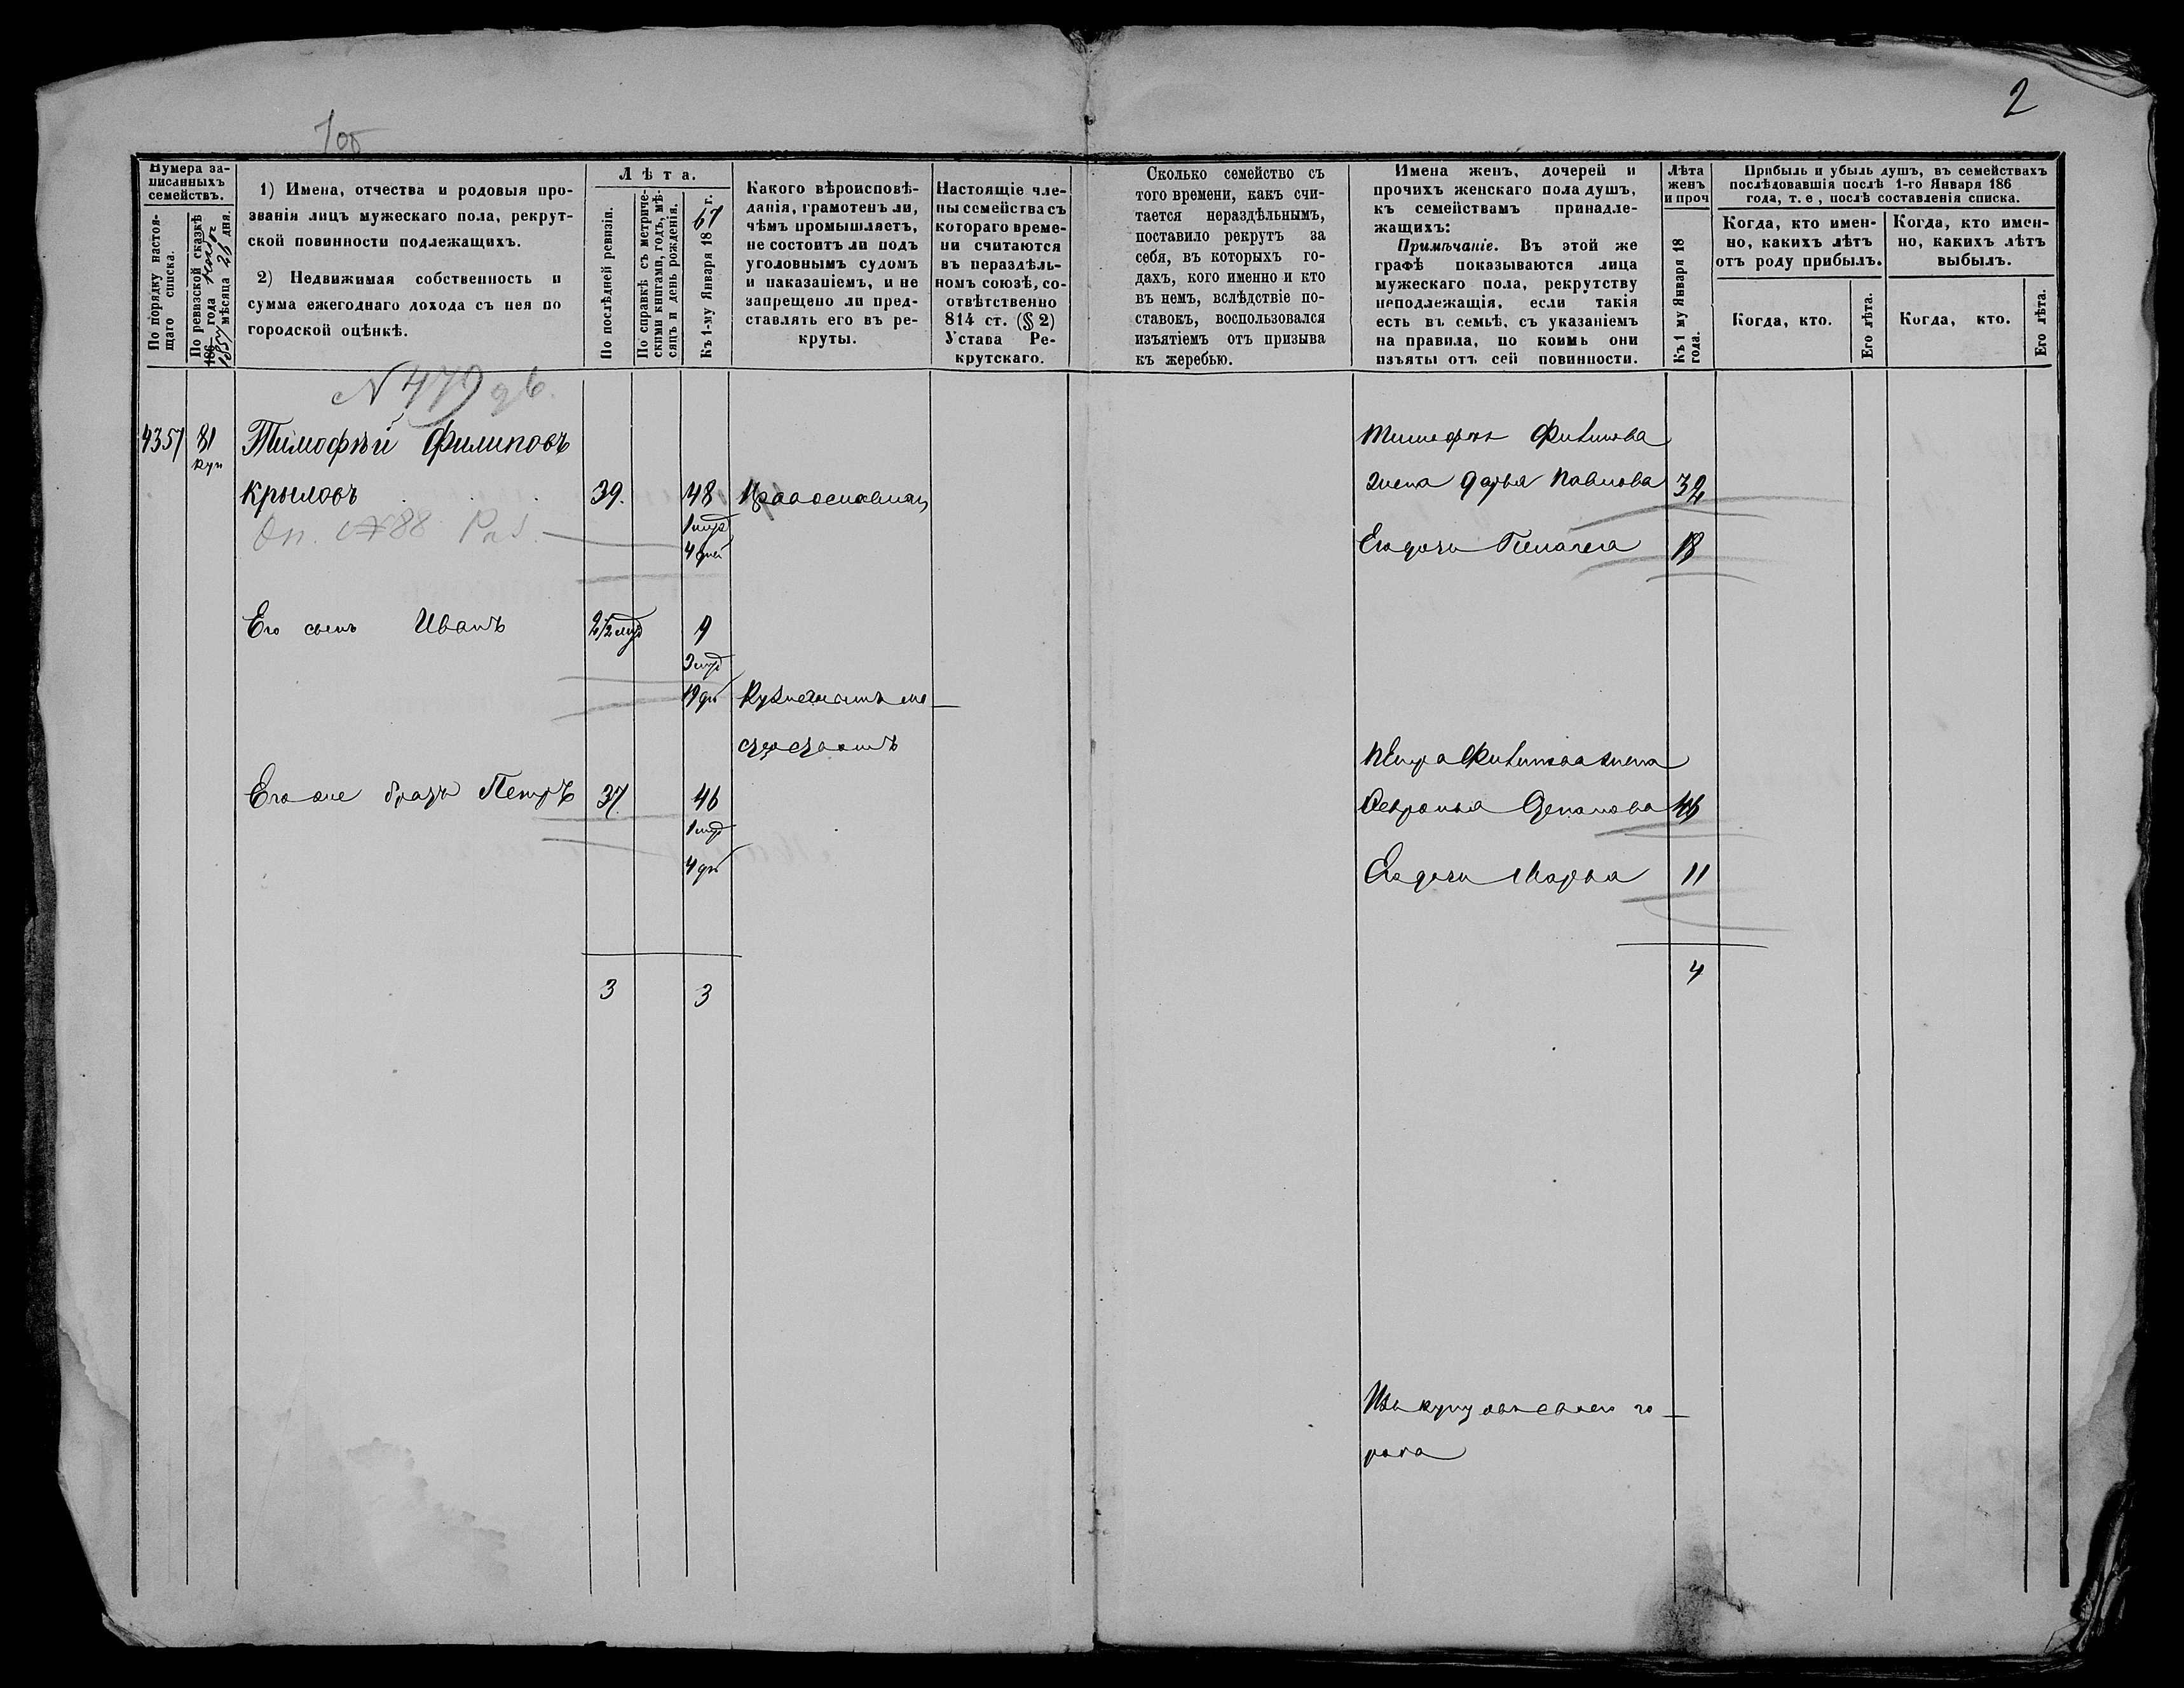 2
100
Нумера за-
писанныхъ
семействъ.
По порядку настоя-
щаго списка.
По ревизской сказкѣ
186 года
1857 мѣсяца 26 дня.
1) Имена, отчества и родовыя про-
званія лицъ мужескаго пола, рекрут-
ской повинности подлежащихъ.
2) Недвижимая собственность и
сумма ежегоднаго дохода съ нея по
городской оцѣнкѣ.
Лѣта.
По послѣдней ревизіи.
По справкѣ съ метриче-
скими книгами, годъ, мѣ-
сяцъ и день рожденія.
Къ 1-му Января 1867 г.
Какого вѣроисповѣ-
данія, грамотенъ ли,
чѣмъ промышляетъ,
не состоитъ ли подъ
уголовнымъ судомъ
и наказаніемъ, и не
запрещено ли пред-
ставлять его въ ре-
круты.
Настоящіе чле-
ны семейства съ
котораго време-
ни считаются
въ нераздѣль-
номъ союзѣ, со-
отвѣтственно
814 ст. (§ 2)
Устава Ре-
крутскаго.
Сколько семейство съ
того времени, какъ счи-
тается нераздѣльнымъ,
поставило рекрутъ за
себя, въ которыхъ го-
дахъ, кого именно и кто
въ немъ, вслѣдствіе по-
ставокъ, воспользовался
изъятіемъ отъ призыва
къ жеребью.
Имена женъ, дочерей и
прочихъ женскаго пола душъ,
къ семействамъ принадле-
жащихъ:
Примѣчаніе. Въ этой же
графѣ показываются лица
мужескаго пола, рекрутству
неподлежащія, если такія
есть въ семьѣ, съ указаніемъ
на правила, по коимъ они
изъяты отъ сей повинности.
Лѣта
женъ
и проч
Къ 1 му Января 18
года.
Прибыль и убыль душъ, въ семействахъ
послѣдовавшія послѣ 1-го Января 186
года, т. е, послѣ составленія списка.
Когда, кто имен-
но, какихъ лѣтъ
отъ роду прибылъ.
Когда, кто.
Его лѣта.
Когда, кто имен-
но, какихъ лѣтъ
выбылъ.
Когда, кто.
Его лѣта.
N 479
4357 81 Тимофѣй Филиповъ
куп
Крыловъ 39. 48 Православнаго
1 мѣс
4 дней
88
Его сынъ Иванъ 2 1/2 мѣс 9
3 мѣс
19 дн
Кузнечнымъ ма
стерствомъ
Его же братъ Петръ 37. 46
1 мѣс
4 дн
3 3
Тимофѣя Филипова
жена Дарья Павлова 32
Его дочь Пелагея 18
Петра Филипова жена
Степанова 46
Его дочь Марья 11
4
Изъ купцовъ сего го
рода